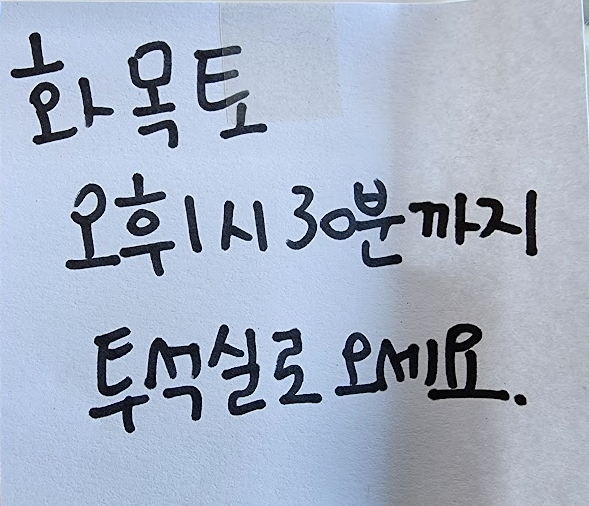 화 목 토
오후 1시 30분까지
투석실로 오세요.